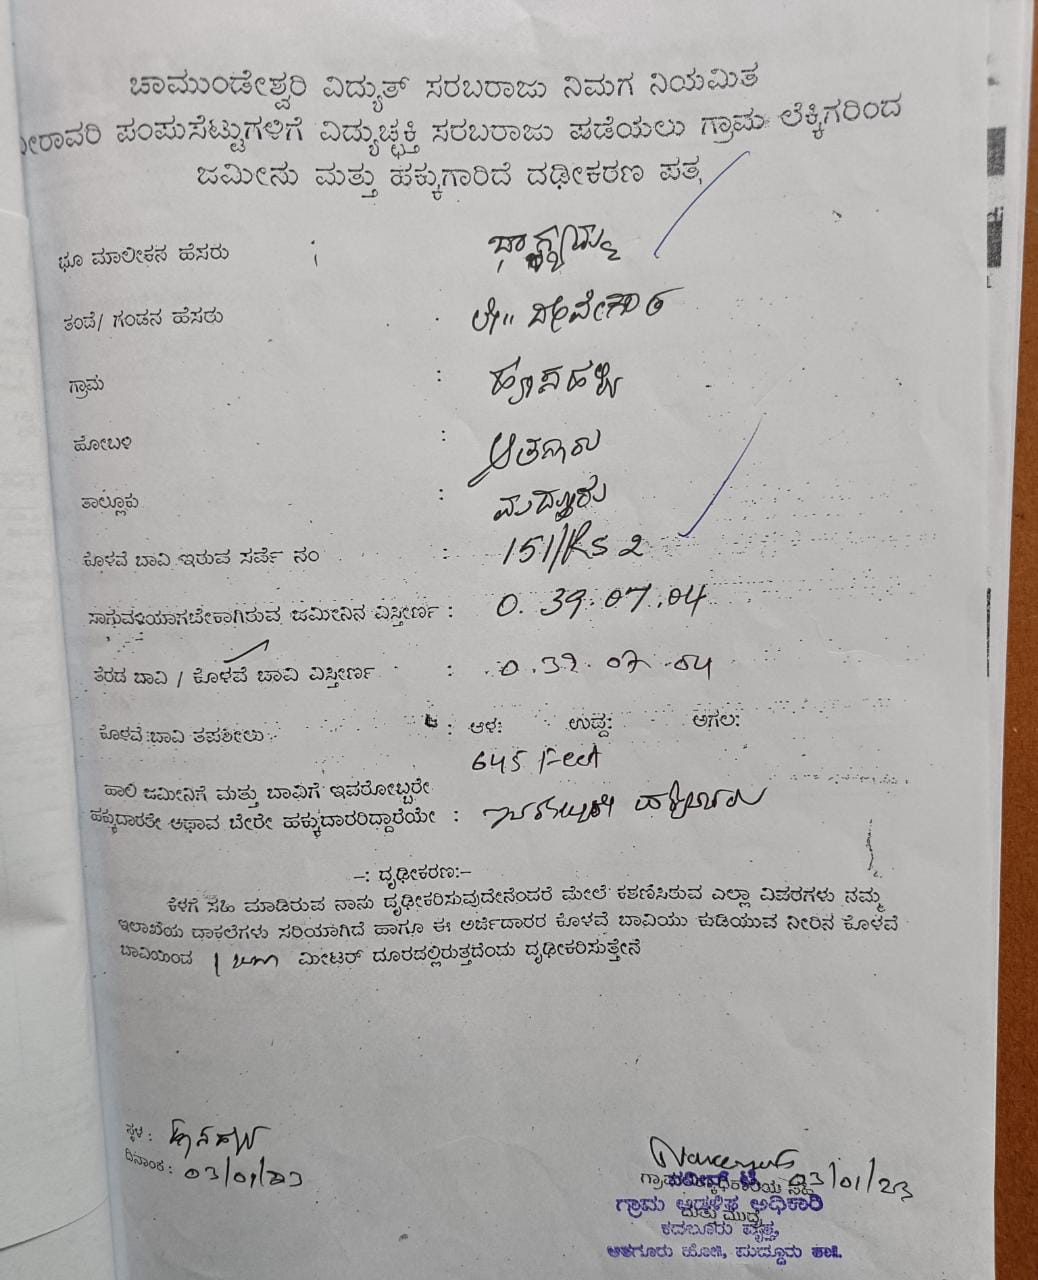 ಚಾಮುಂಡೇಶ್ವರಿ ವಿದ್ಯುತ್ ಸರಬರಾಜು ನಿಮಗ ನಿಯಮಿತ
ನೀರಾವರಿ ಪಂಪುಸೆಟ್ಟುಗಳಿಗೆ ವಿದ್ಯುಚ್ಛಕ್ತಿ ಸರಬರಾಜು ಪಡೆಯಲು ಗ್ರಾಮ ಲೆಕ್ಕಿಗರಿಂದ
ಜಮೀನು ಮತ್ತು ಹಕ್ಕುಗಾರಿದೆ ದಢೀಕರಣ ಪತ್ರ
ಭೂ ಮಾಲೀಕನ ಹೆಸರು :
ತಂದೆ/ ಗಂಡನ ಹೆಸರು : ಲೇ|| ದೇವೇಗೌಡ
ಗ್ರಾಮ :
ಹೋಬಳಿ : ಆತಗೂರು
ತಾಲ್ಲೂಕು : ಮದ್ದೂರು
ಕೊಳವೆ ಬಾವಿ ಇರುವ ಸರ್ವೆ ನಂ : 151/Rs 2
ಸಾಗುವಳಿಯಾಗಬೇಕಾಗಿರುವ ಜಮೀನಿನ ವಿಸ್ತೀರ್ಣ : 0. 39.07.04
ತೆರದ ಬಾವಿ / ಕೊಳವೆ ಬಾವಿ ವಿಸ್ತೀರ್ಣ : 0.39.07.04
ಕೊಳವೆ ಬಾವಿ ತಪಶೀಲು : ಆಳ: ಉದ್ದ: ಅಗಲ:
645 Feet
ಹಾಲಿ ಜಮೀನಿಗೆ ಮತ್ತು ಬಾವಿಗೆ ಇವರೋಬ್ಬರೇ
ಹಕ್ಕುದಾರತೇ ಅಥಾವ ಬೇರೇ ಹಕ್ಕುದಾರರಿದ್ದಾರೆಯೇ :
-: ದೃಢೀಕರಣ:-
ಕೆಳಗೆ ಸಹಿ ಮಾಡಿರುವ ನಾನು ದೃಢೀಕರಿಸುವುದೇನೆಂದರೆ ಮೇಲೆ ಕಾಣಿಸಿರುವ ಎಲ್ಲಾ ವಿವರಗಳು ನಮ್ಮ
ಇಲಾಖೆಯ ದಾಕಲೆಗಳು ಸರಿಯಾಗಿದೆ ಹಾಗೂ ಈ ಅರ್ಜಿದಾರರ ಕೊಳವೆ ಬಾವಿಯು ಕುಡಿಯುವ ನೀರಿನ ಕೊಳವೆ
ಬಾವಿಯಿಂದ ಮೀಟರ್ ದೂರದಲ್ಲಿರುತ್ತದೆಂದು ದೃಢೀಕರಿಸುತ್ತೇನೆ
ಸ್ಥಳ :
ದಿನಾಂಕ : 03/01/23
03/01/23
ಗ್ರಾಮ ಆಡಳಿತ ಅಧಿಕಾರಿ
ಕದಲೂರು ವೃತ್ತ,
ಆತಗೂರು ಹೋಬಳಿ, ಮದ್ದೂರು ತಾಲ್ಲೂಕು.